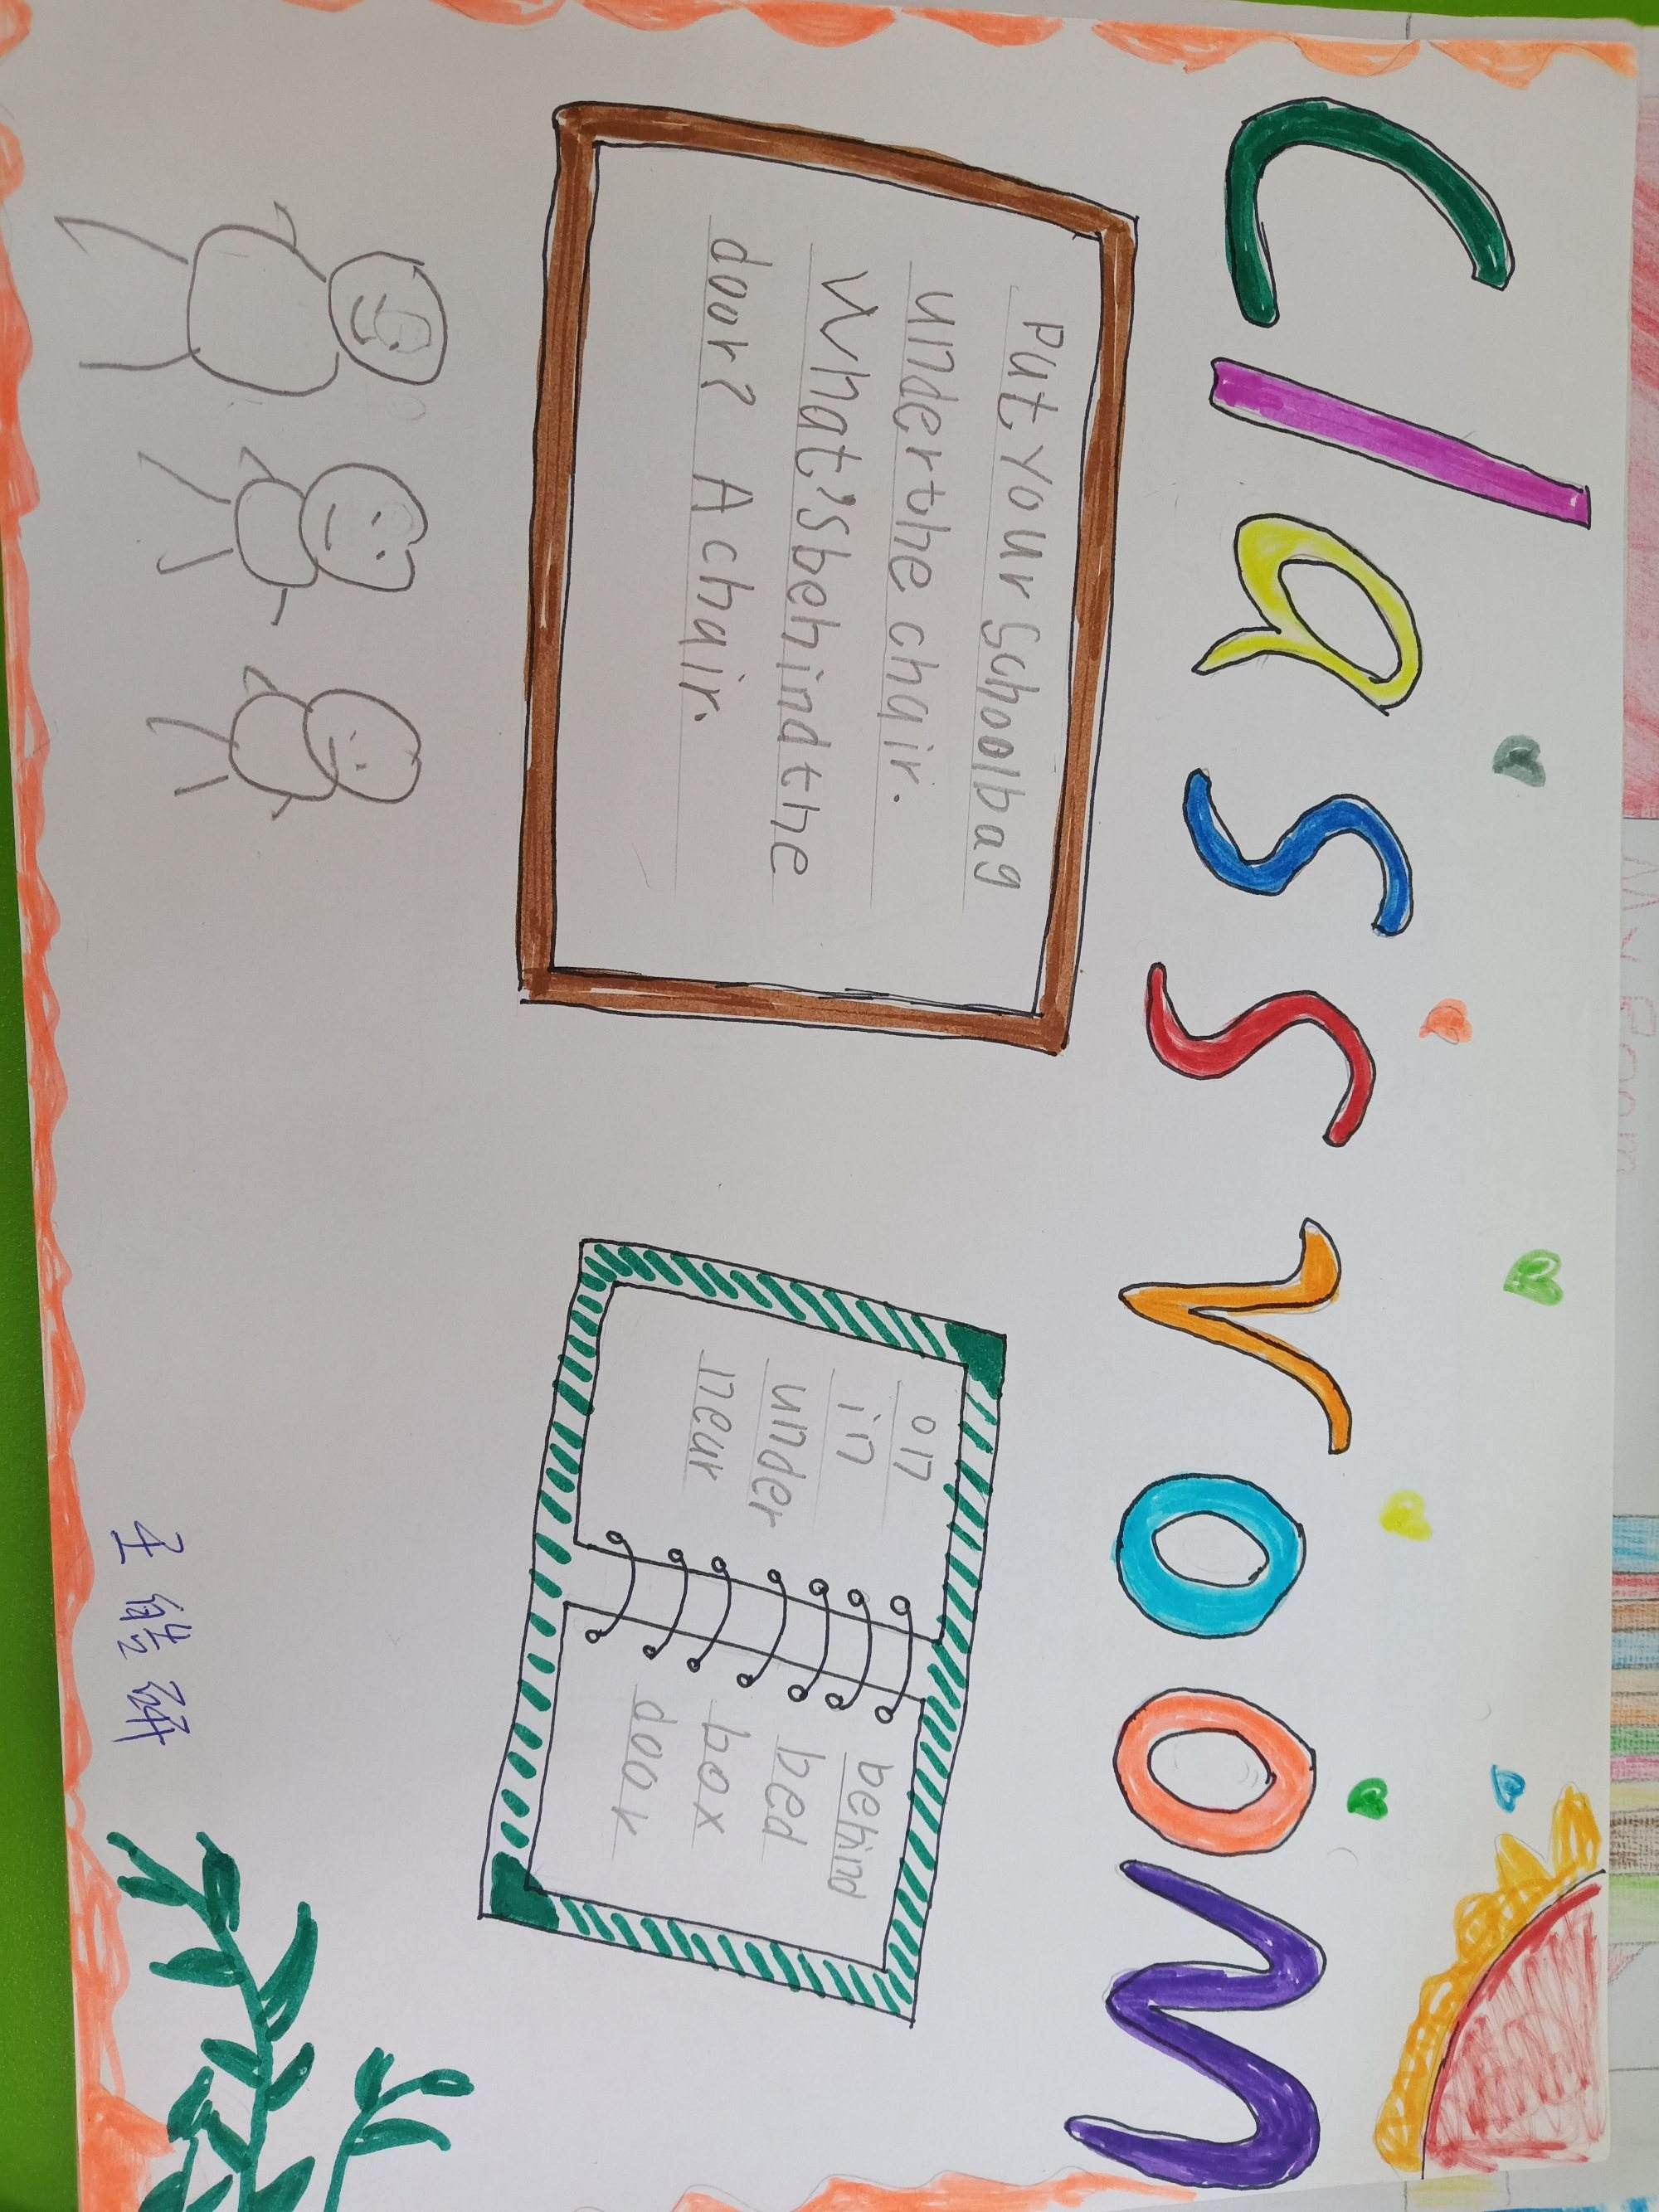 Classroom
Put your schoolbag
under the chair.
What's behind the
door? A chair.
on
in
under
near
behind
bed
box
door